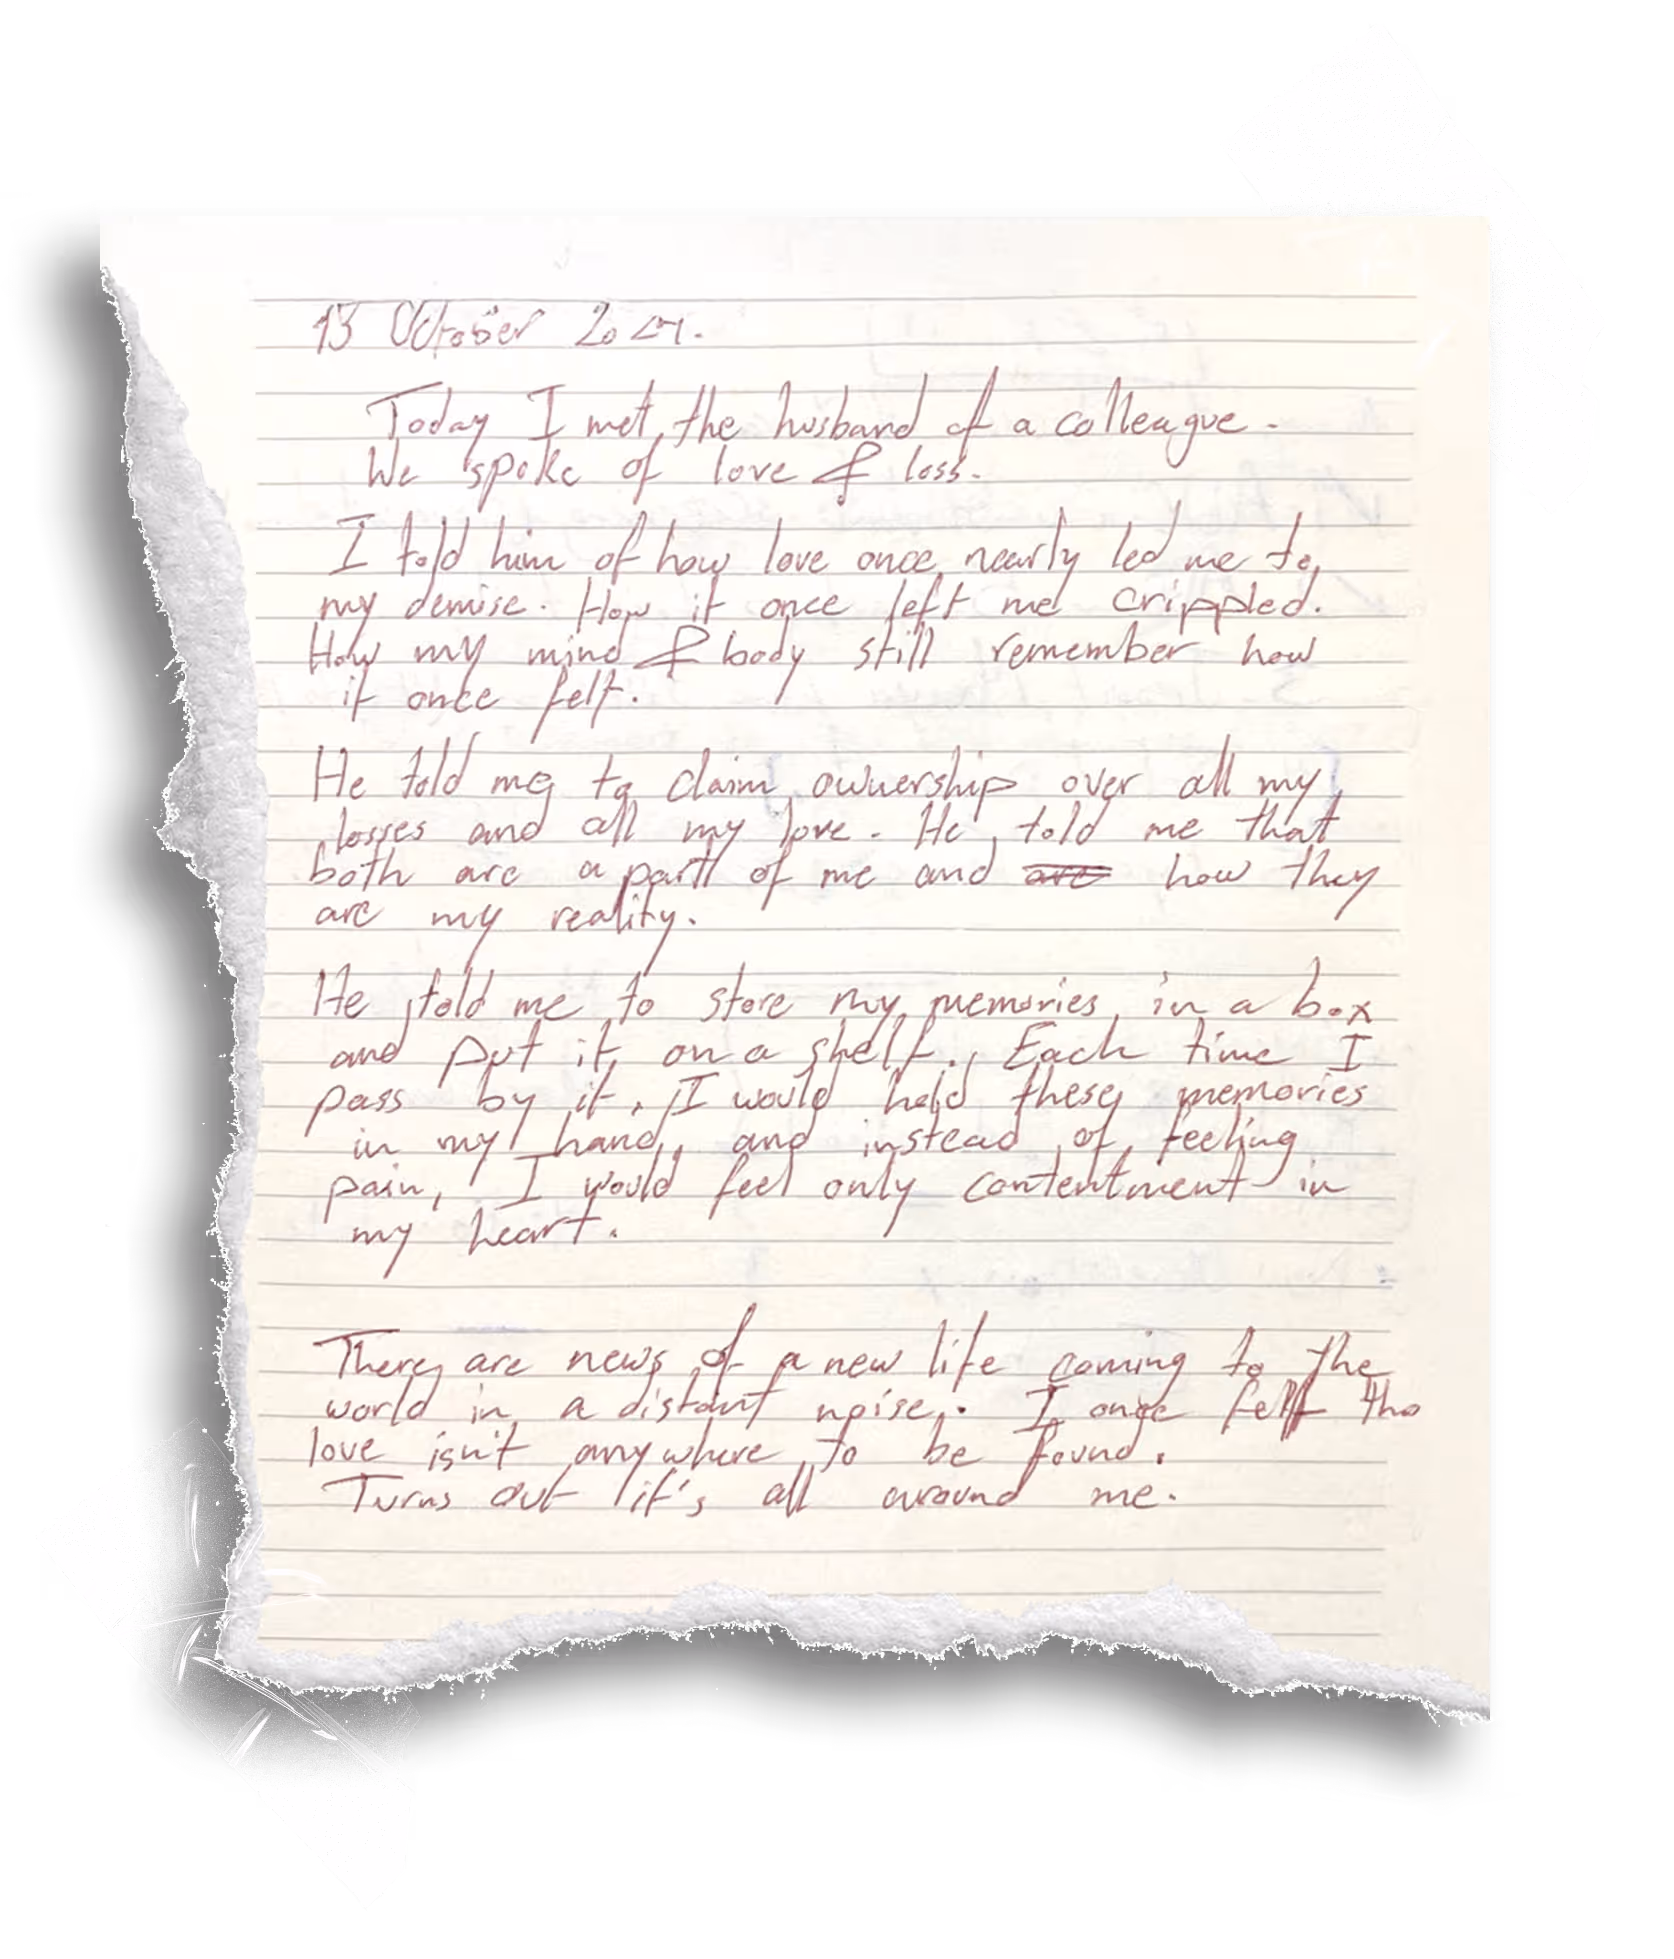 13 October 2024.
Today I met the husband of a colleague.
We spoke of love & loss.
I told him of how love once nearly led me to
my demise. How it once left me crippled.
How my mind & body still remember how
it once felt.
He told me to claim ownership over all my
losses and all my love. He told me that
both are a part of me and are how they
are my reality.
He told me to store my memories in a box
and put it on a shelf. Each time I
pass by it, I would hold these memories
in my hand, and instead of feeling
pain, I would feel only contentment in
my heart.
There are news of a new life coming to the
world in a distant noise. I once felt tha
love isn't anywhere to be found.
Turns out it's all around me.